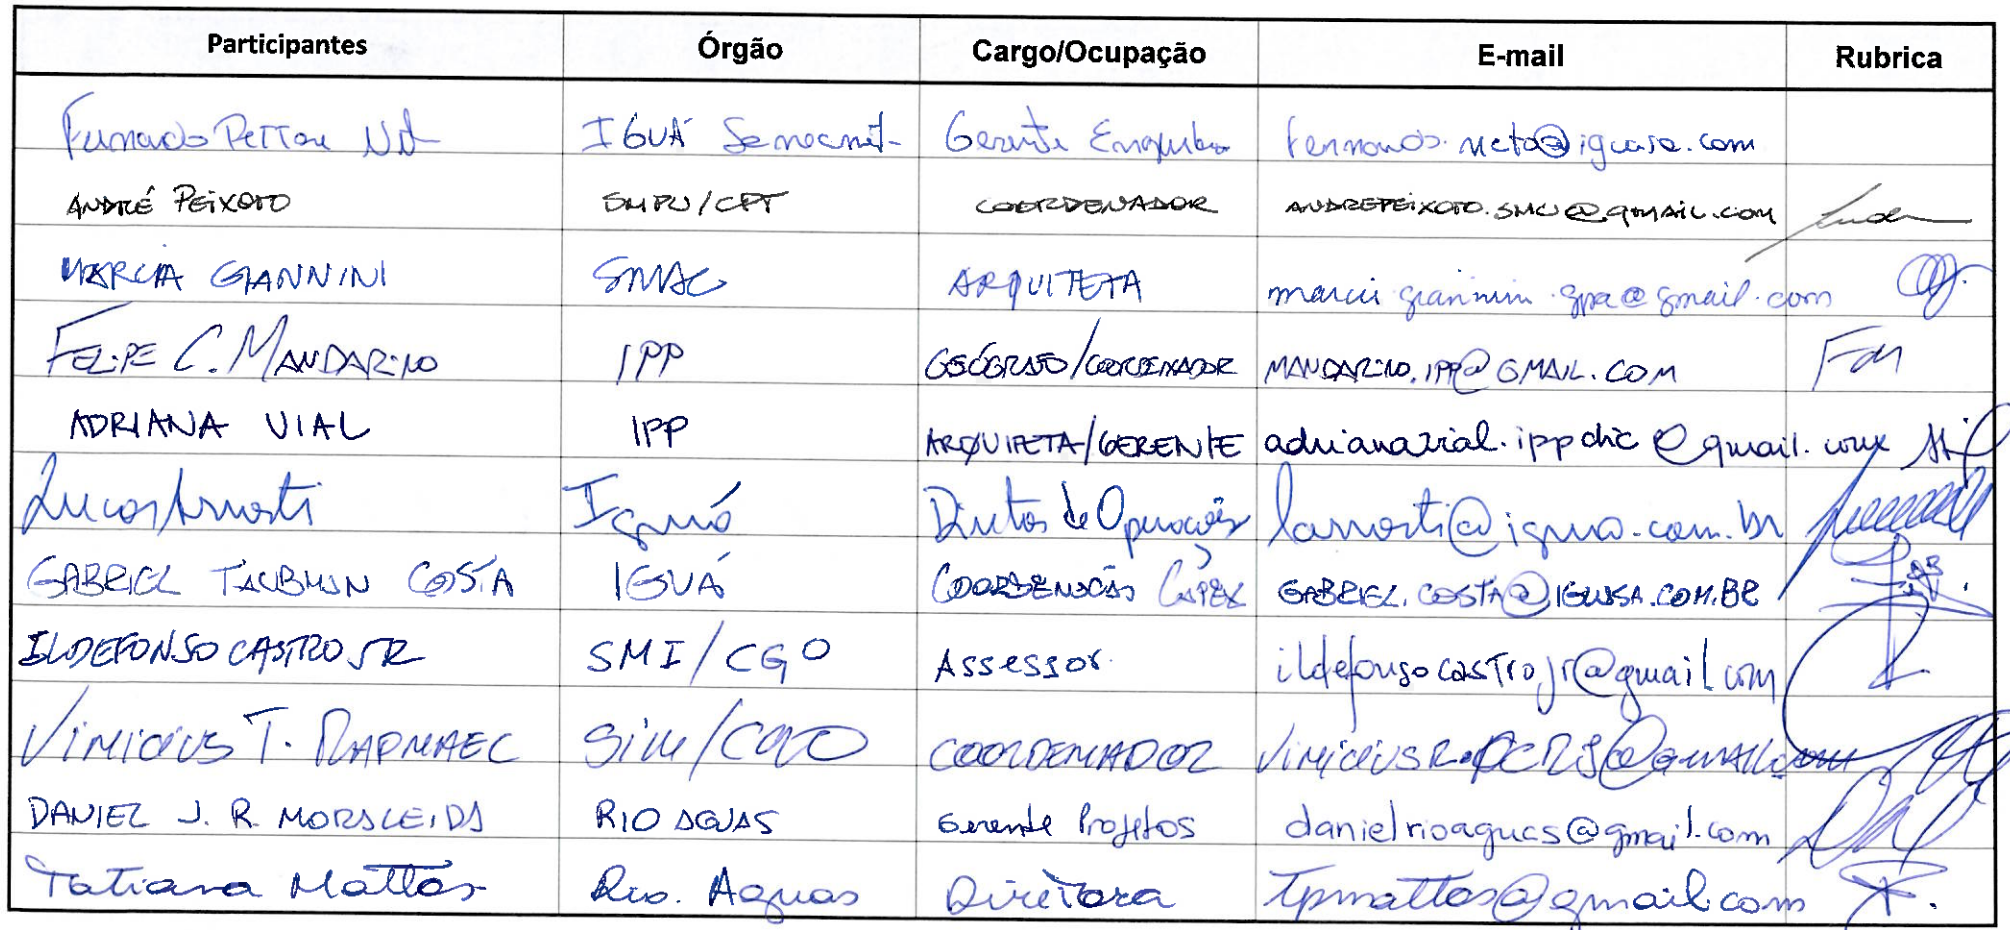 Participantes Órgão Cargo/Ocupação E-mail Rubrica
Fernando IGUÁ Gerente fernando.neto@iguasa.com
ANDRÉ PEIXOTO SMPU/CPT COORDENADOR ANDREPEIXOTO.SMU@gmail.com
MARCIA GIANNINI SMAC ARQUITETA marcia.giannini.gpa@gmail.com
FELIPE C. MANDARINO IPP GEÓGRAFO/COORDENADOR MANDARINO.IPP@GMAIL.COM
ADRIANA VIAL IPP ARQUITETA/GERENTE adrianavial.ippdic@gmail.com
Lucas Arnosti Iguá Diretor de Operações larnosti@igua.com.br
GABRIEL TAUBMAN COSTA IGUÁ COORDENAÇÃO CAPEX GABRIEL.COSTA@IGUASA.COM.BR
ILDEFONSO CASTRO JR SMI/CGO Assessor ildefonsocastrojr@gmail.com
VINICIUS T. RAPHAEL COORDENADOR VINICIUSR.PCRJ@GMAIL.com
DANIEL J. R. RIO AGUAS Gerente Projetos danielrioaguas@gmail.com
Tatiana Mattos Rio. Aguas Diretora tpmattos@gmail.com